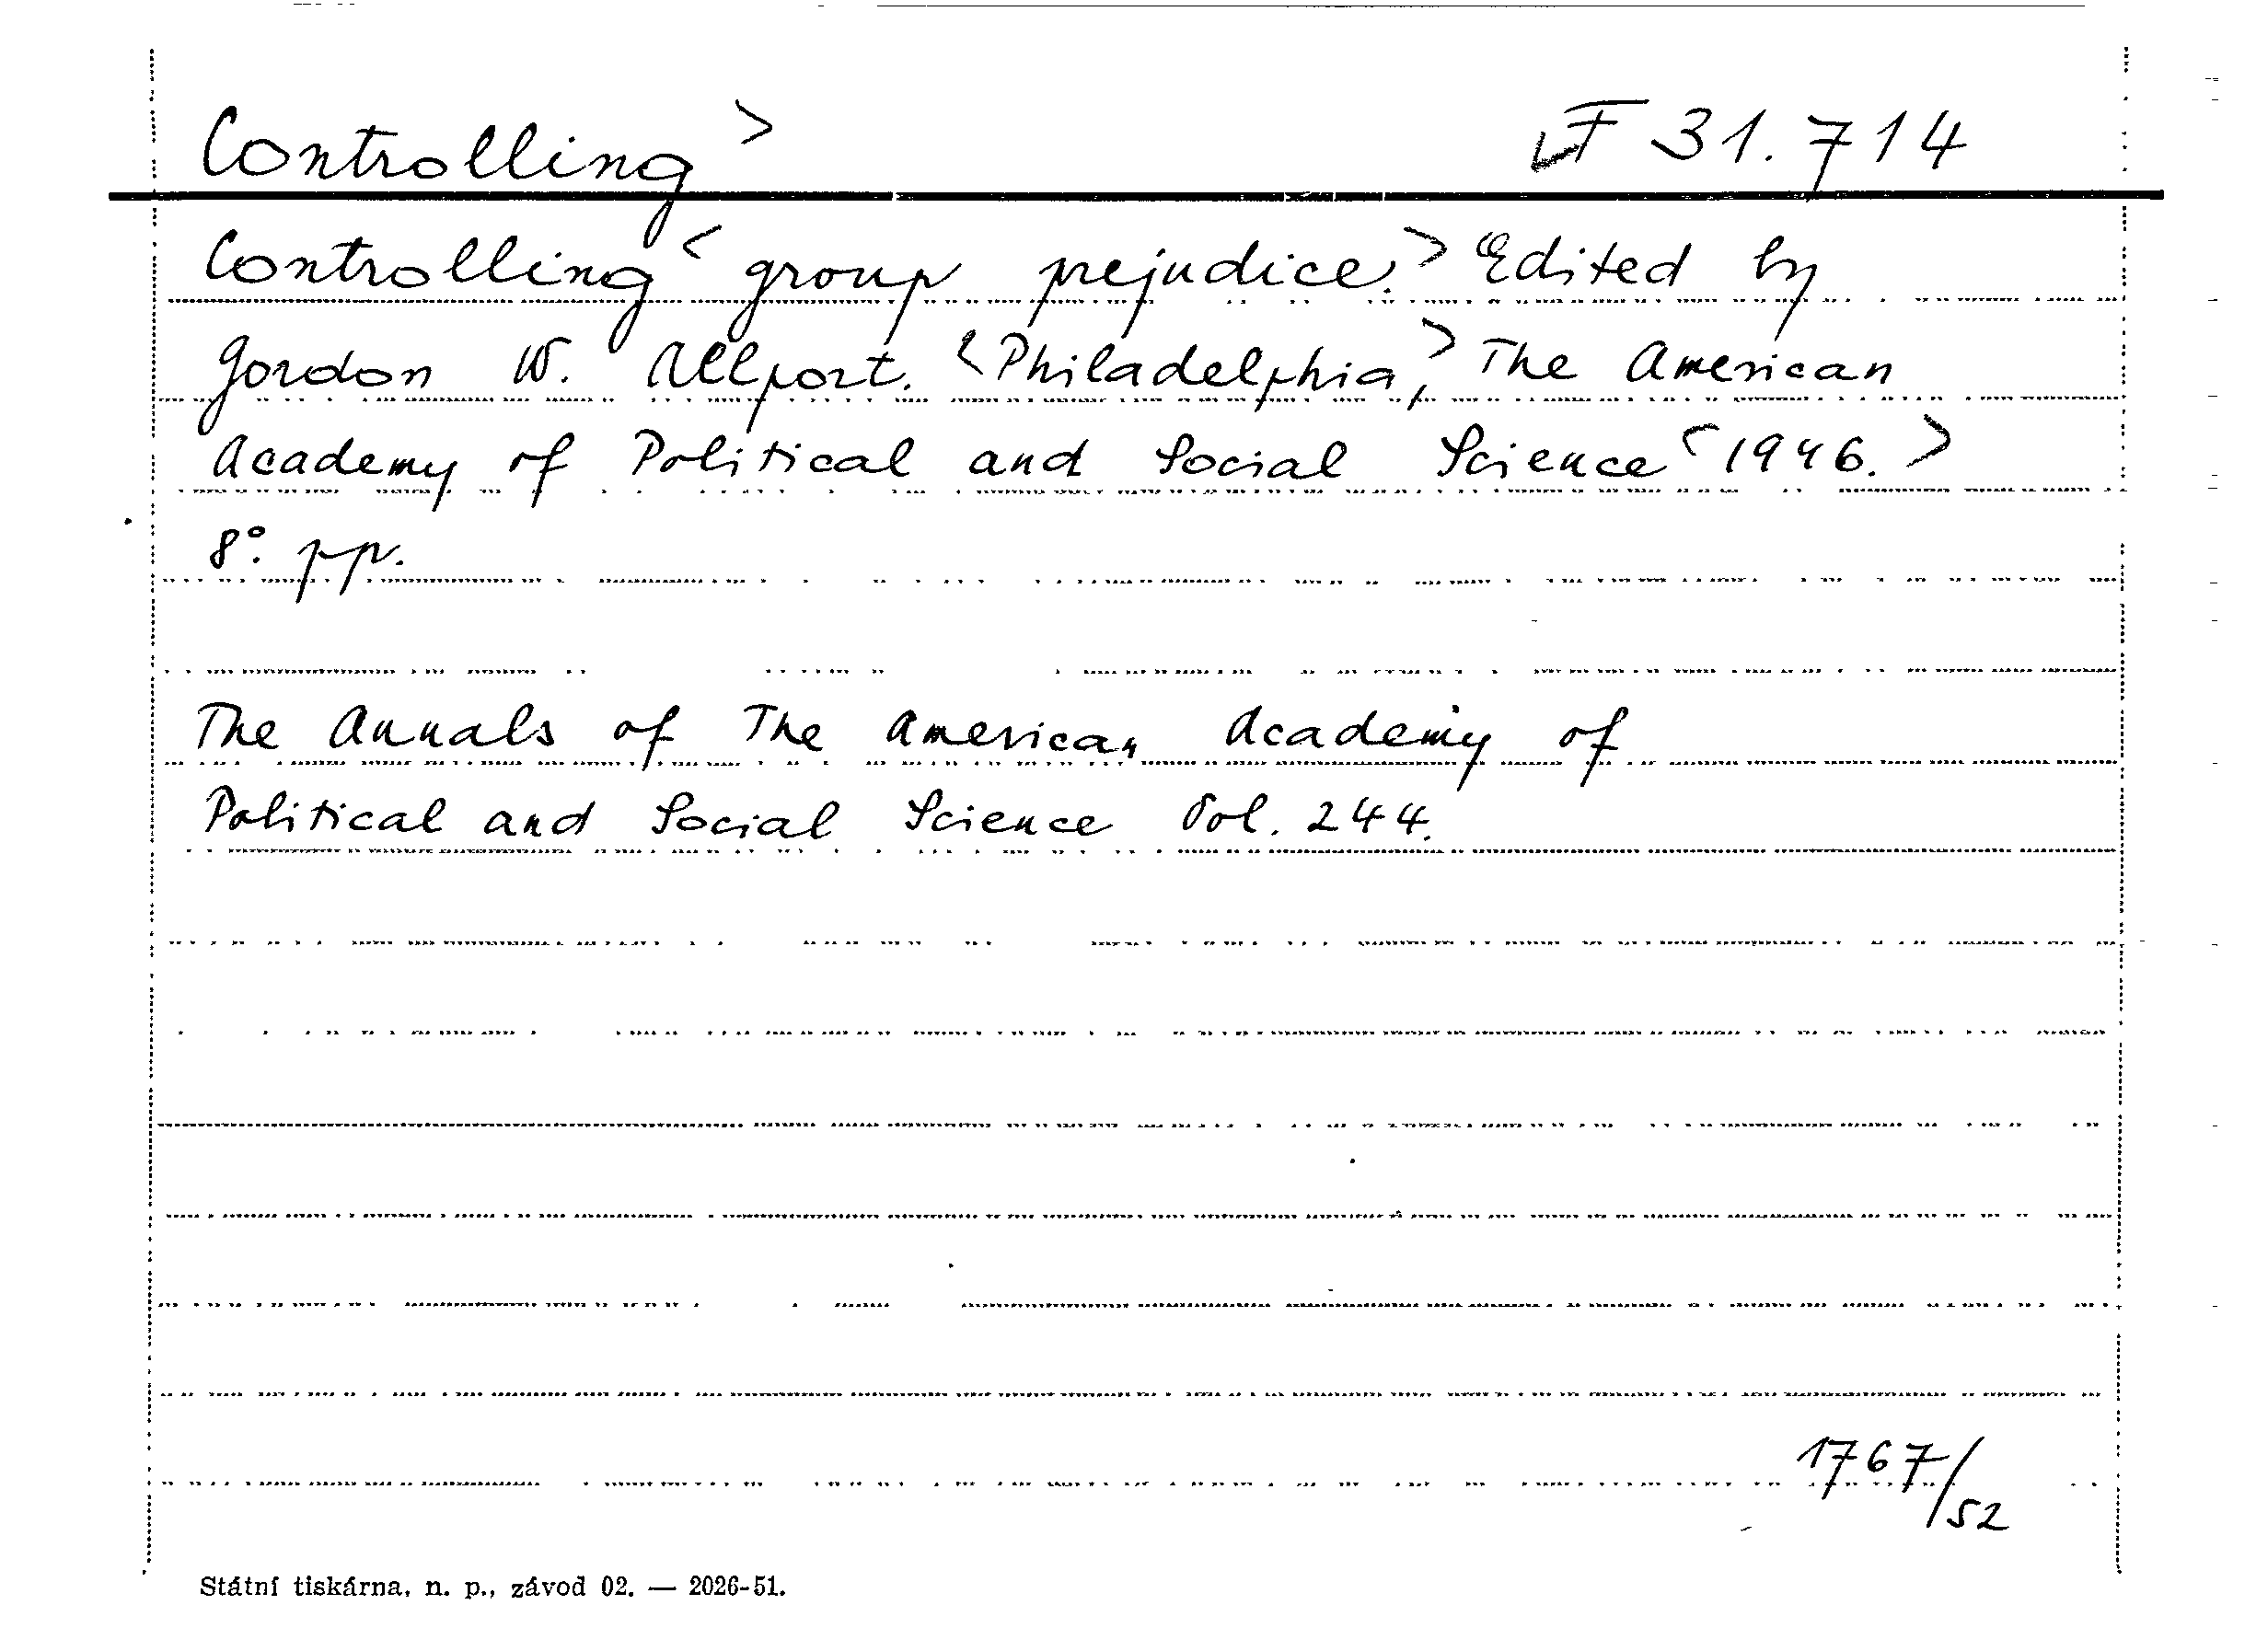 Controlling > F 31.714
Controlling < group prejudice. > Edited by
Gordon W. Allport. < Philadelphia, > The American
Academy of Political and Social Science < 1946. >
8°. pp.
The Annals of The American Academy of
Political and Social Science Vol. 244.
1767/52
Státní tiskárna, n. p., závod 02. — 2026-51.